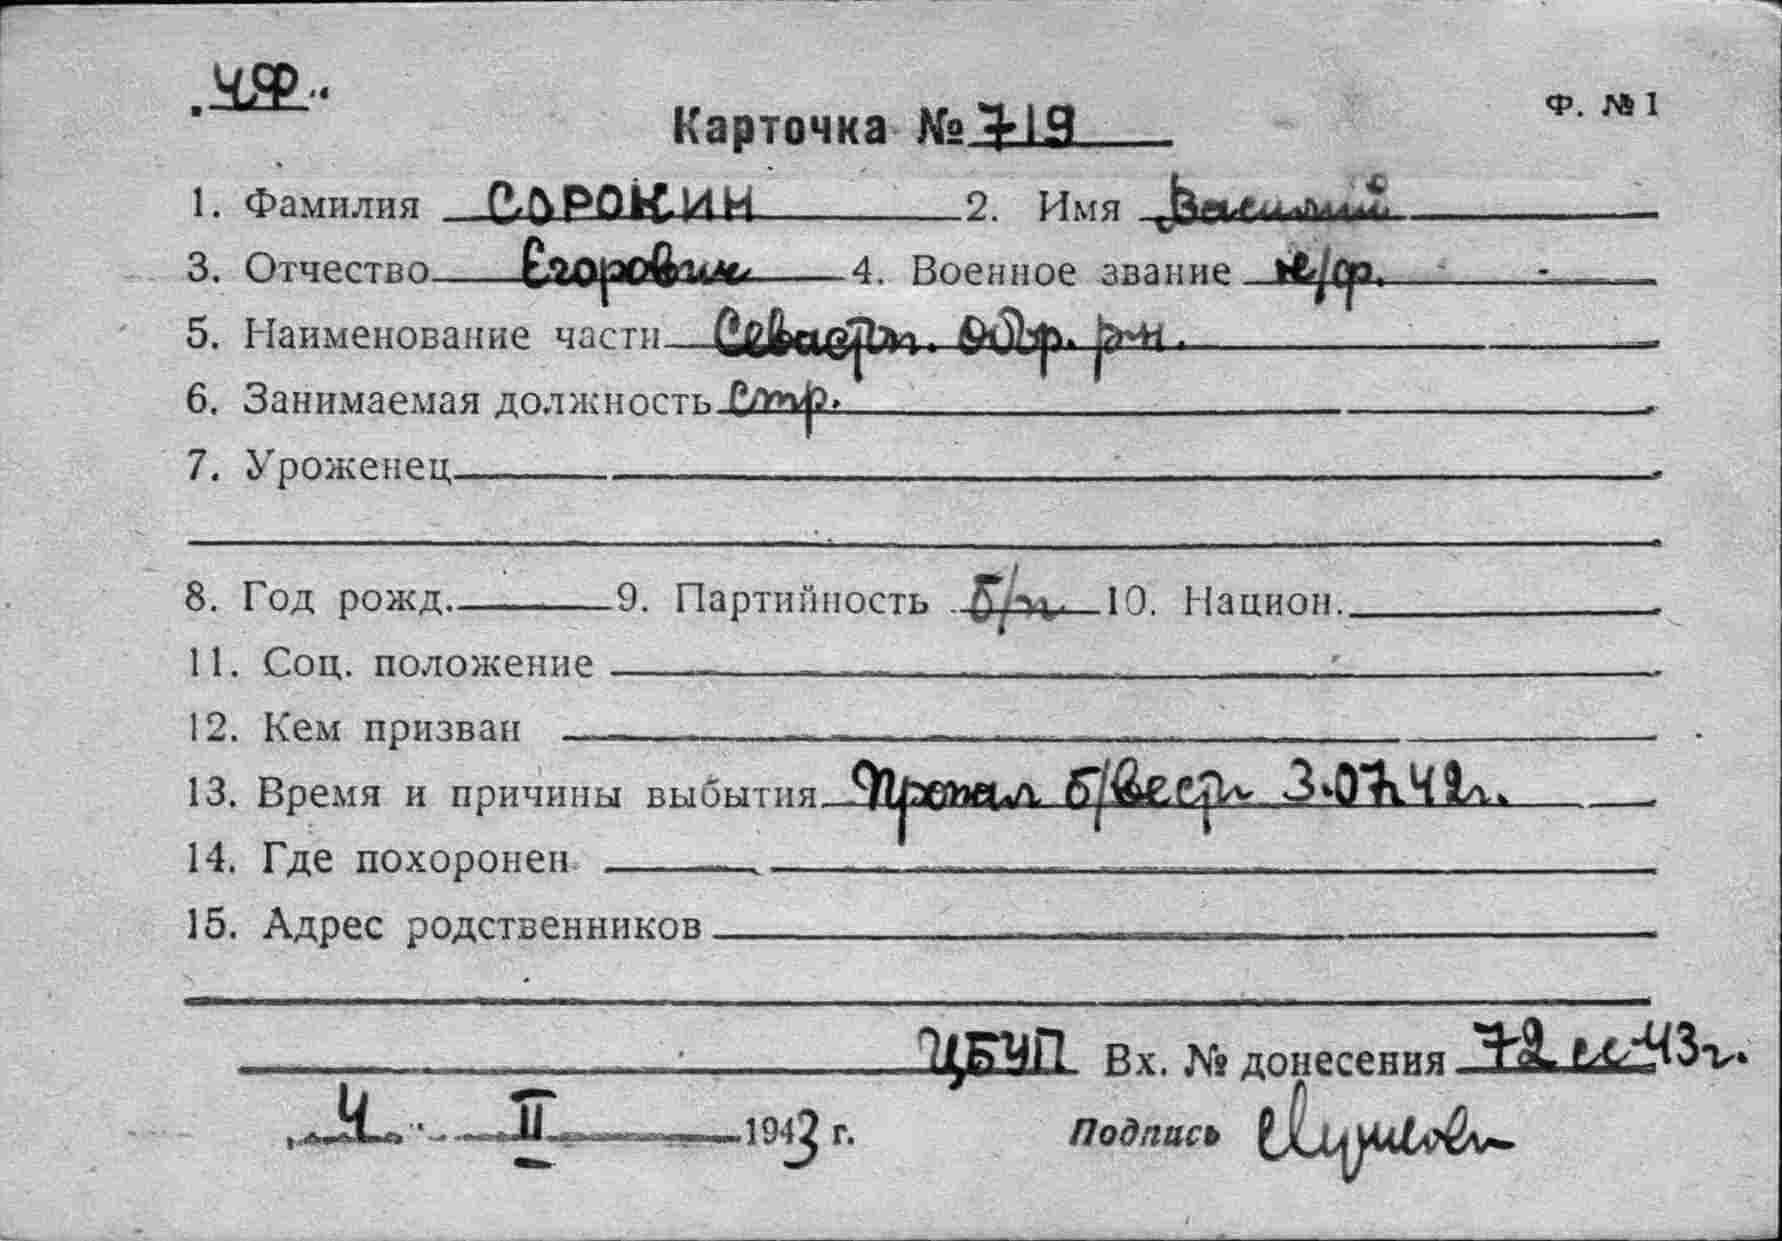 ЧФ
Ф. №1
Карточка №719
1. Фамилия СОРОКИН 2. Имя Василий
3. Отчество Егорович 4. Военное звание к/ф.
5. Наименование части Севастоп. обор. р-н.
6. Занимаемая должность Стр.
7. Уроженец
8. Год рожд. 9. Партийность б/п 10. Национ.
11. Соц. положение
12. Кем призван
13. Время и причины выбытия Пропал б/вести 3.07.42г.
14. Где похоронен
15. Адрес родственников
ЦБУП Вх. № донесения 72сс-43г.
4 II 1943 г. Подпись